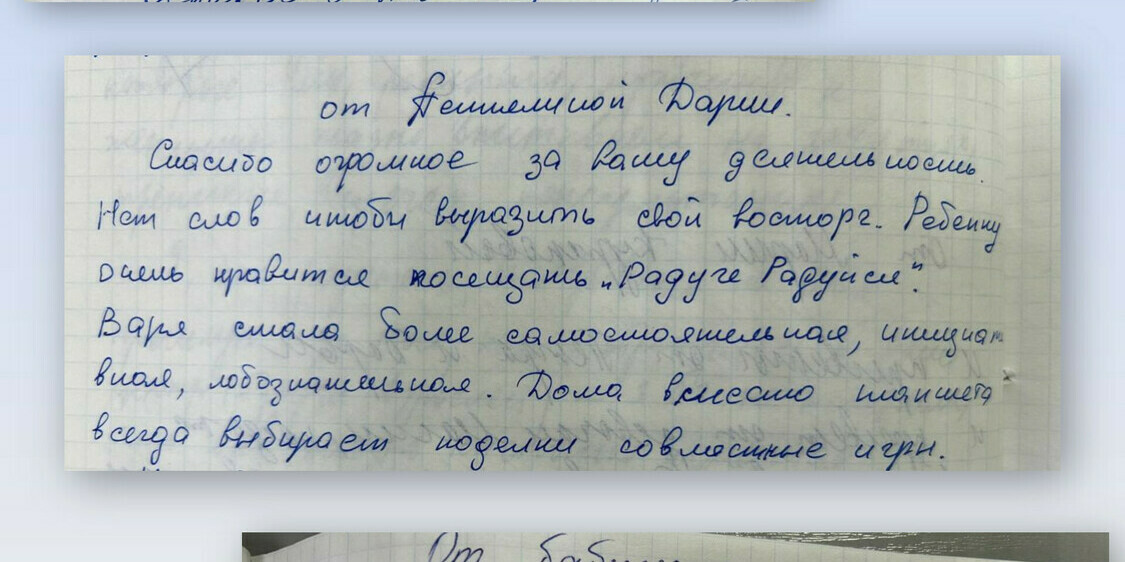 от Дарии.
Спасибо огромное за вашу деятельность.
Нет слов чтобы выразить свой восторг. Ребенку
очень нравится посещать „Радуге Радуйся".
Варя стала более самостоятельная, инициат
вная, лобознательная. Дома вместо планшета
всегда выбирает поделки совместные игры.
От